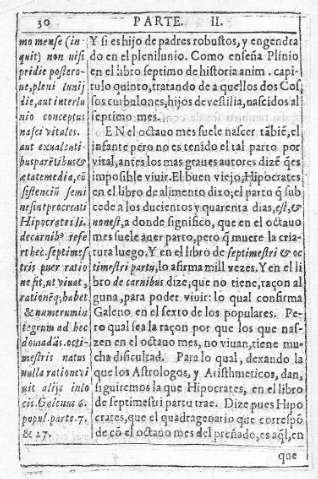 30 PARTE. II.
mo mense (in
quit) non nisi
pridie postero-
ue, pleni luny
die, aut interlu
nio conceptus
nasci vitales.
aut exualenti-
bus parētibus &
ætate media, cō
sistenciū semi
ne sint procreati
Hipocrates li.
de carnibꝰ refe
rt hec. septimes
tris puer ratio
ne fit, ut viuat,
rationēq; habet
& numerum in
tegrum ad heb
domadas. octi-
mestris natus
nulla ratione vi
uit alijs in lo
cis. Galenus 6.
popul. parte. 7.
& 27.
Y si es hijo de padres robustos, y engendra
do en el plenilunio. Como enseña Plinio
en el libro septimo de historia anim. capi-
tulo quinto, tratando de aquellos dos Cos,
sos cuibulones, hijos de vestilia, nascidos al
septimo mes.
EN el octauo mes suele nascer tābiē, el
infante pero no es tenido el tal parto por
vital, antes los mas graues autores dizē q̄es
impossible viuir. El buen viejo, Hipocrates
en el libro de alimento dizo; el parto q̄ sub
cede a los ducientos y quarenta dias, est, &
non est, a donde significo, que en el octauo
mes suele auer parto, pero q̄ muere la cria-
tura luego. Y en el libro de septimestri & oc
timestri partu, lo afirma mill vezes. Y en el li
bro de carnibus dize, que no tiene, raçon al
guna, para poder viuir: lo qual confirma
Galeno en el sexto de los populares. Pe-
ro qual sea la raçon por que los que nas-
zen en el octauo mes, no viuan, tiene mu-
cha dificultad. Para lo qual, dexando la
que los Astrologos, y Arithmeticos, dan,
siguiremos la que Hipocrates, en el libro
de septimestri partu trae. Dize pues Hipo
crates, que el quadragenario que correspō
de cō el octauo mes del preñado, es aq̄l, en
que